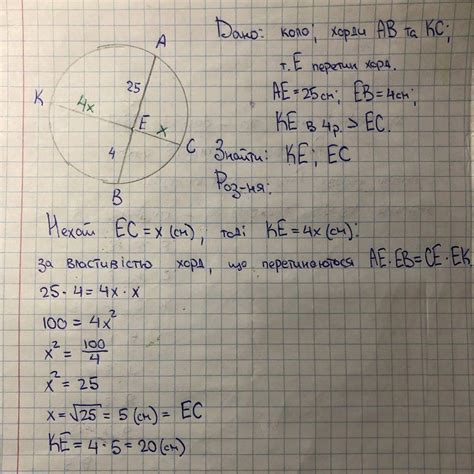 Дано: коло; хорди AB та KC;
т. E перетин хорд.
AE = 25 см; EB = 4 см;
KE в 4 р. > EC.
Знайти: KE; EC
Роз-ня:
A
K
25
4x
E
x
C
4
B
Нехай EC = x (см), тоді KE = 4x (см):
за властивістю хорд, що перетинаються AE · EB = CE · EK
25 · 4 = 4x · x
100 = 4x²
x² = 100/4
x² = 25
x = √25 = 5 (см) = EC
KE = 4 · 5 = 20 (см)